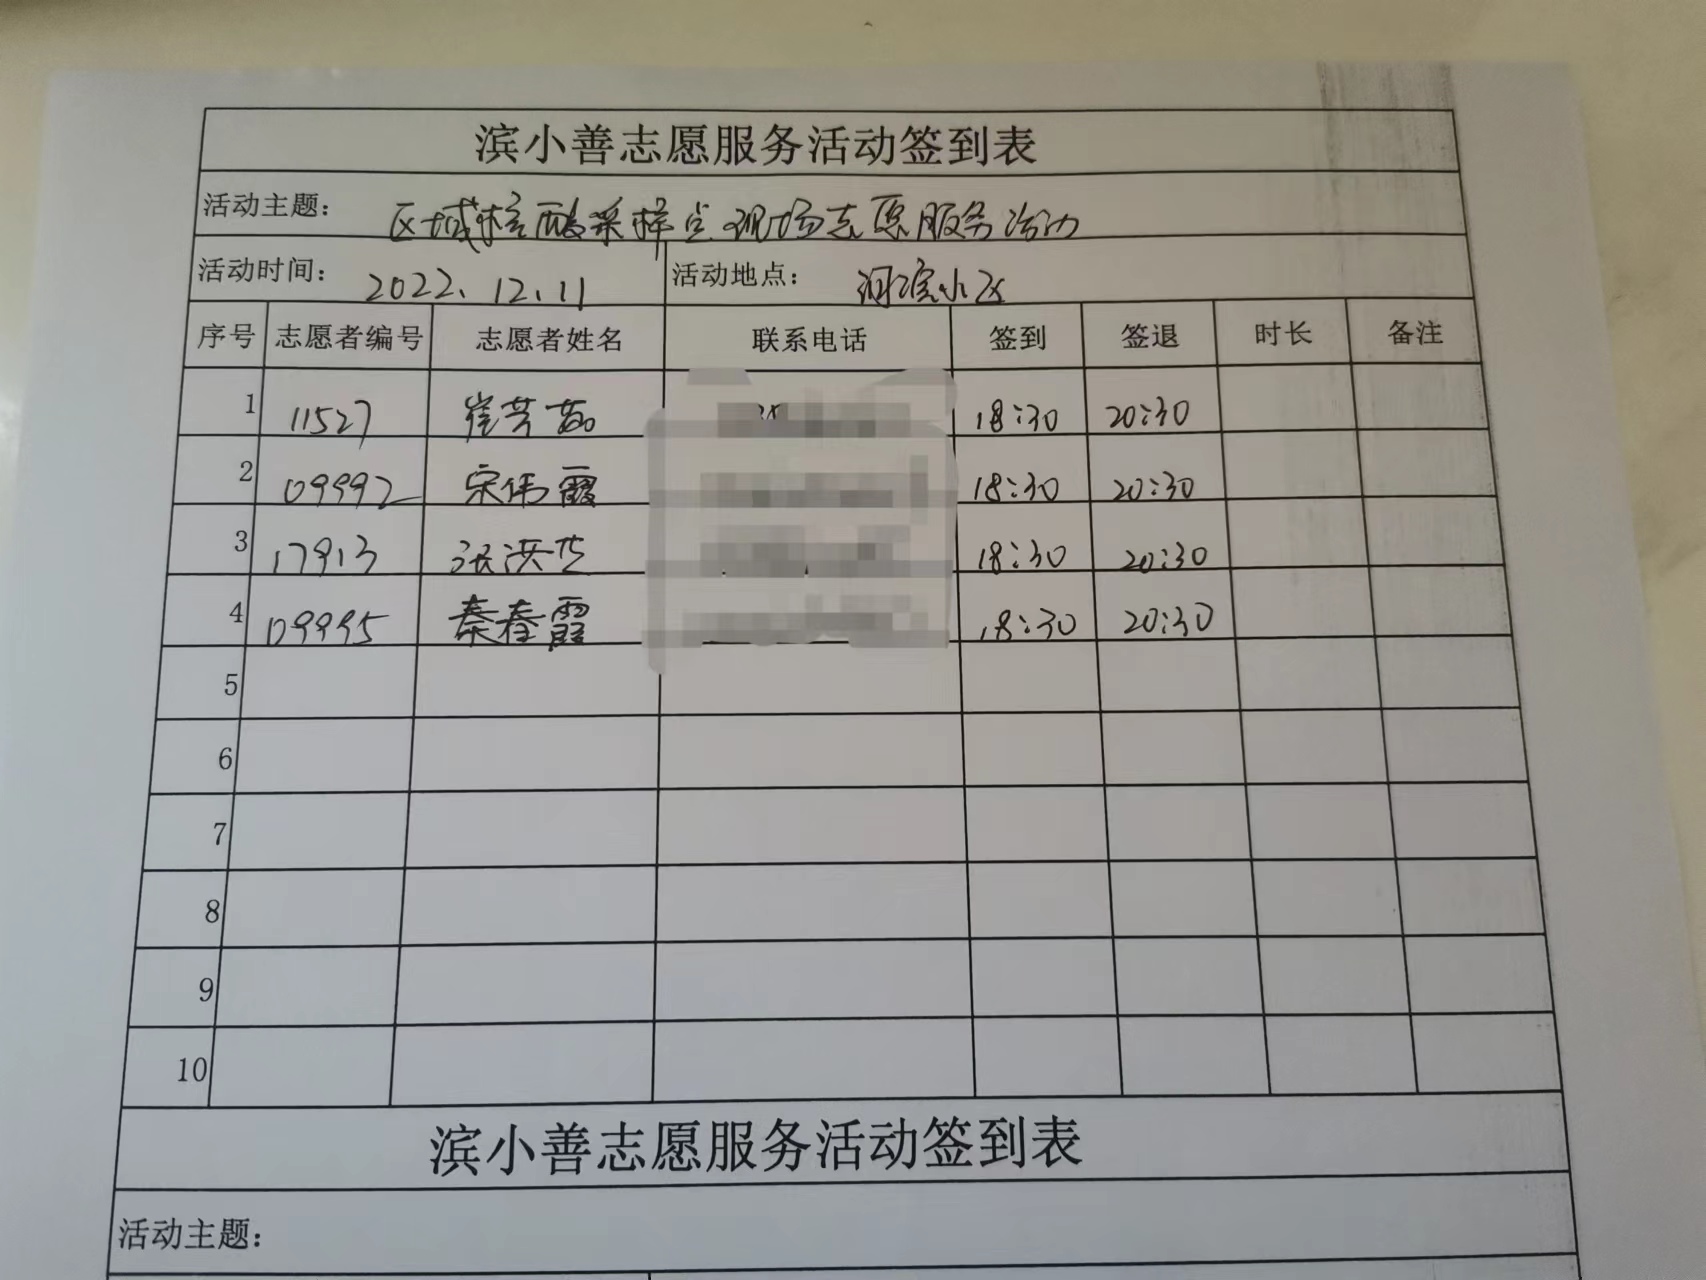 滨小善志愿服务活动签到表
活动主题： 区域核酸采样点现场志愿服务活动
活动时间： 2022.12.11 活动地点： 河滨小区
序号 志愿者编号 志愿者姓名 联系电话 签到 签退 时长 备注
1 11527 崔芳茹 18:30 20:30
2 09992 宋伟霞 18:30 20:30
3 17913 张洪芝 18:30 20:30
4 09995 秦春霞 18:30 20:30
5
6
7
8
9
10
滨小善志愿服务活动签到表
活动主题：